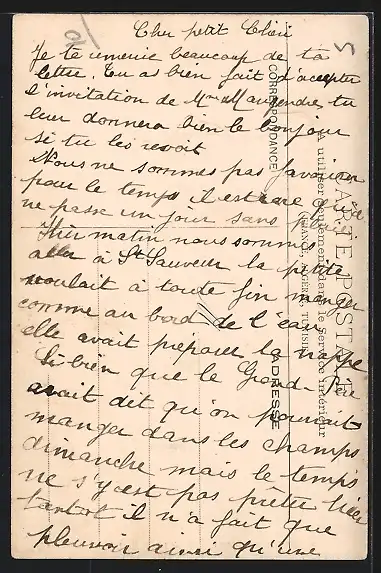 Cher petit Chéri
Je te remercie beaucoup de ta
lettre. Tu as bien fait d'accepter
l'invitation de Mme Maugendre, tu
leur donnera bien le bonjour
si tu les revoit
Nous ne sommes pas favorisé
pour le temps il est rare qu'il
ne passe un jour sans
Hier matin nous sommes
aller à St Sauveur la petite
voulait à toute fin manger
comme au bord de l'eau
elle avait préparer la nappe
Si bien que le Grand-Père
avait dit qu'on pourrait
manger dans les champs
dimanche mais le temps
ne s'y est pas prêter hier
tantot il n'a fait que
pleuvoir ainsi qu'une
CARTE POSTALE
A utiliser seulement dans le Service intérieur
(FRANCE, ALGÉRIE, TUNISIE)
CORRESPONDANCE
ADRESSE